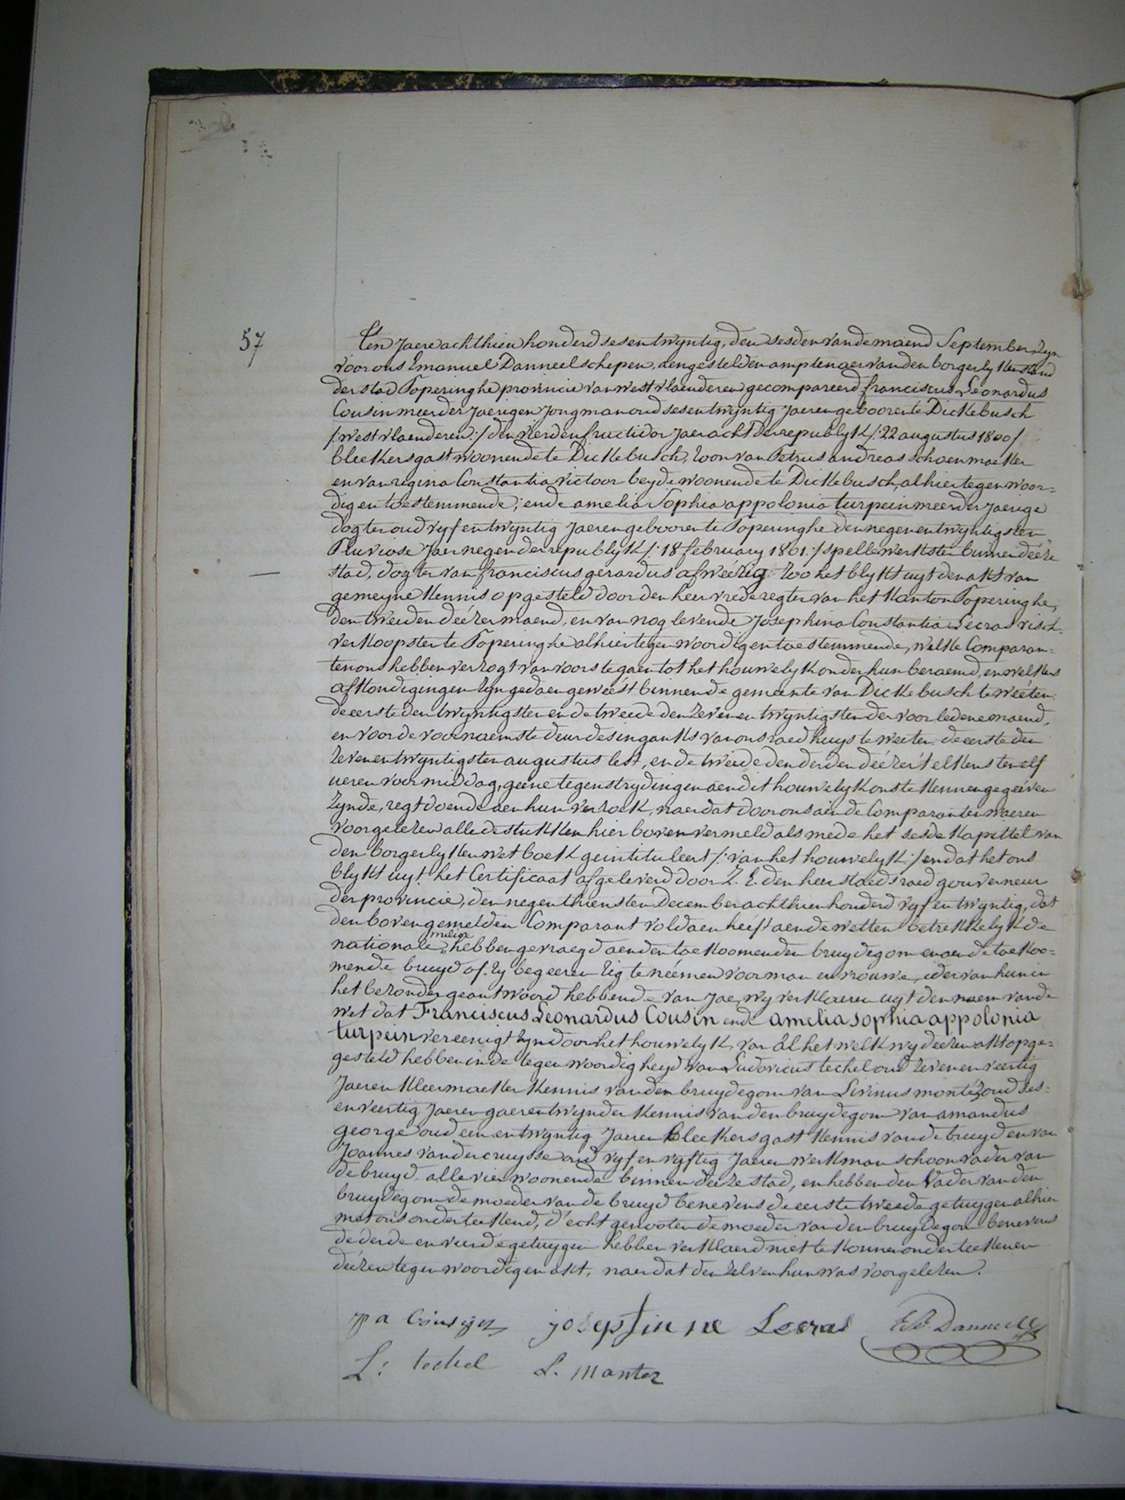 57
Ten Jaere achthien honderd sesentwyntig, den sesden van de maend September, zyn
voor ons Emanuel Danneel schepen, aengestelden amptenaer van den borgerlyken stand
der stad Poperinghe provincie van westvlaenderen gecompareerd franciscus Leonardus
Cousin meerderjaerigen Jongman oud sesentwyntig Jaeren geboren te Dickebusch
/:westvlaenderen:/ den vierden fructidor Jaer acht der republyk /:22 augustus 1800/
bleekersgast woonende te Dickebusch, zoon van Petrus andreas schoenmaeker
en van regina Constantia victoor beyde woonende te Dickebusch, alhier tegenwoor-
dig en toestemmende; ende amelia Sophia appolonia turpein meerderjaerige
dogter oud vyfentwyntig Jaeren geboren te Poperinghe den negenentwyntigsten
Pluviose Jaer negen der republyk /:18 february 1801:/ spellewerkster binnen deéze
stad, dogter van franciscus gerardus afweézig zoo het blykt uyt den akt van
gemeyne kennis opgesteld door den heer vrederegter van het kanton Poperinghe,
den tweeden deézer maend, en van nog levende Josephina Constantia Lecras visch-
verkoopster te Poperinghe alhier tegenwoordig en toestemmende, welke Comparan-
ten ons hebben verzogt van voorstegaen tot het houwelyk onder hun beraemd, en welkers
afkondigingen zyn gedaen geweést binnen de gemeente van Dickebusch te weéten
de eerste den twyntigsten en de tweede den zevenentwyntigsten der voorledene maend,
en voor de voornaemste deur des inganks van ons raedhuys te weéten de eerste den
zevenentwyntigsten augustus lest, en de tweede den derden deézer, telkens ten elf
ueren voormiddag, geene tegenstrydingen aen dit houwelyk ons te kennen gegeéven
zynde, regtdoende aen hun verzoek, naerdat door ons aen de Comparanten waeren
voorgelezen alle de stukken hier boven vermeld als mede het sesde kapittel van
den borgerlyken wetboek geintituleert /:van het houwelyk:/ en dat het ons
blykt uyt het Certificaat afgeleverd door Z. E. den heer staedsraed gouverneur
der provincie, den negenthiensten december achthien honderd vyfentwyntig, dat
den bovengemelden Comparant voldaen heeft aen de wetten betrekkelyk de
nationale milicie, hebben gevraegd aen den toekoomenden bruydegom en aen de toekoo-
mende bruyd of zy begeeren zig te neémen voor man en vrouwe, ider van hun in
het bezonder geantwoord hebbende van Jae, wy verklaeren uyt den naem van de
wet dat Franciscus Leonardus Cousin ende amelia sophia appolonia
turpein vereenigt zyn door het houwelyk, van al het welk wy deézen akt opge-
gesteld hebben in de tegenwoordigheyd van Ludovicus techel oud zevenenveertig
Jaeren kleermaeker kennis van den bruydegom van Livinus montéz oud ses-
enveertig Jaeren gaerentwynder kennis van den bruydegom van amandus
george oud eenentwyntig Jaeren bleekersgast kennis van de bruyd en van
Joannes vandercruysse oud vyfenvyftig Jaeren werkman schoonvader van
de bruyd alle vier woonende binnen deéze stad, en hebben den vader van den
bruydegom de moeder van de bruyd benevens de eerste tweede getuygen alhier
met ons onderteekend, d'echtgenoote de moeder van den bruydegom benevens
de derde en vierde getuygen hebben verklaerd niet te konnen onderteekenen
deézen tegenwoordigen akt, naerdat den zelven hun was voorgelezen.
josephinne Lecras Danneel
L: techel L. Montez